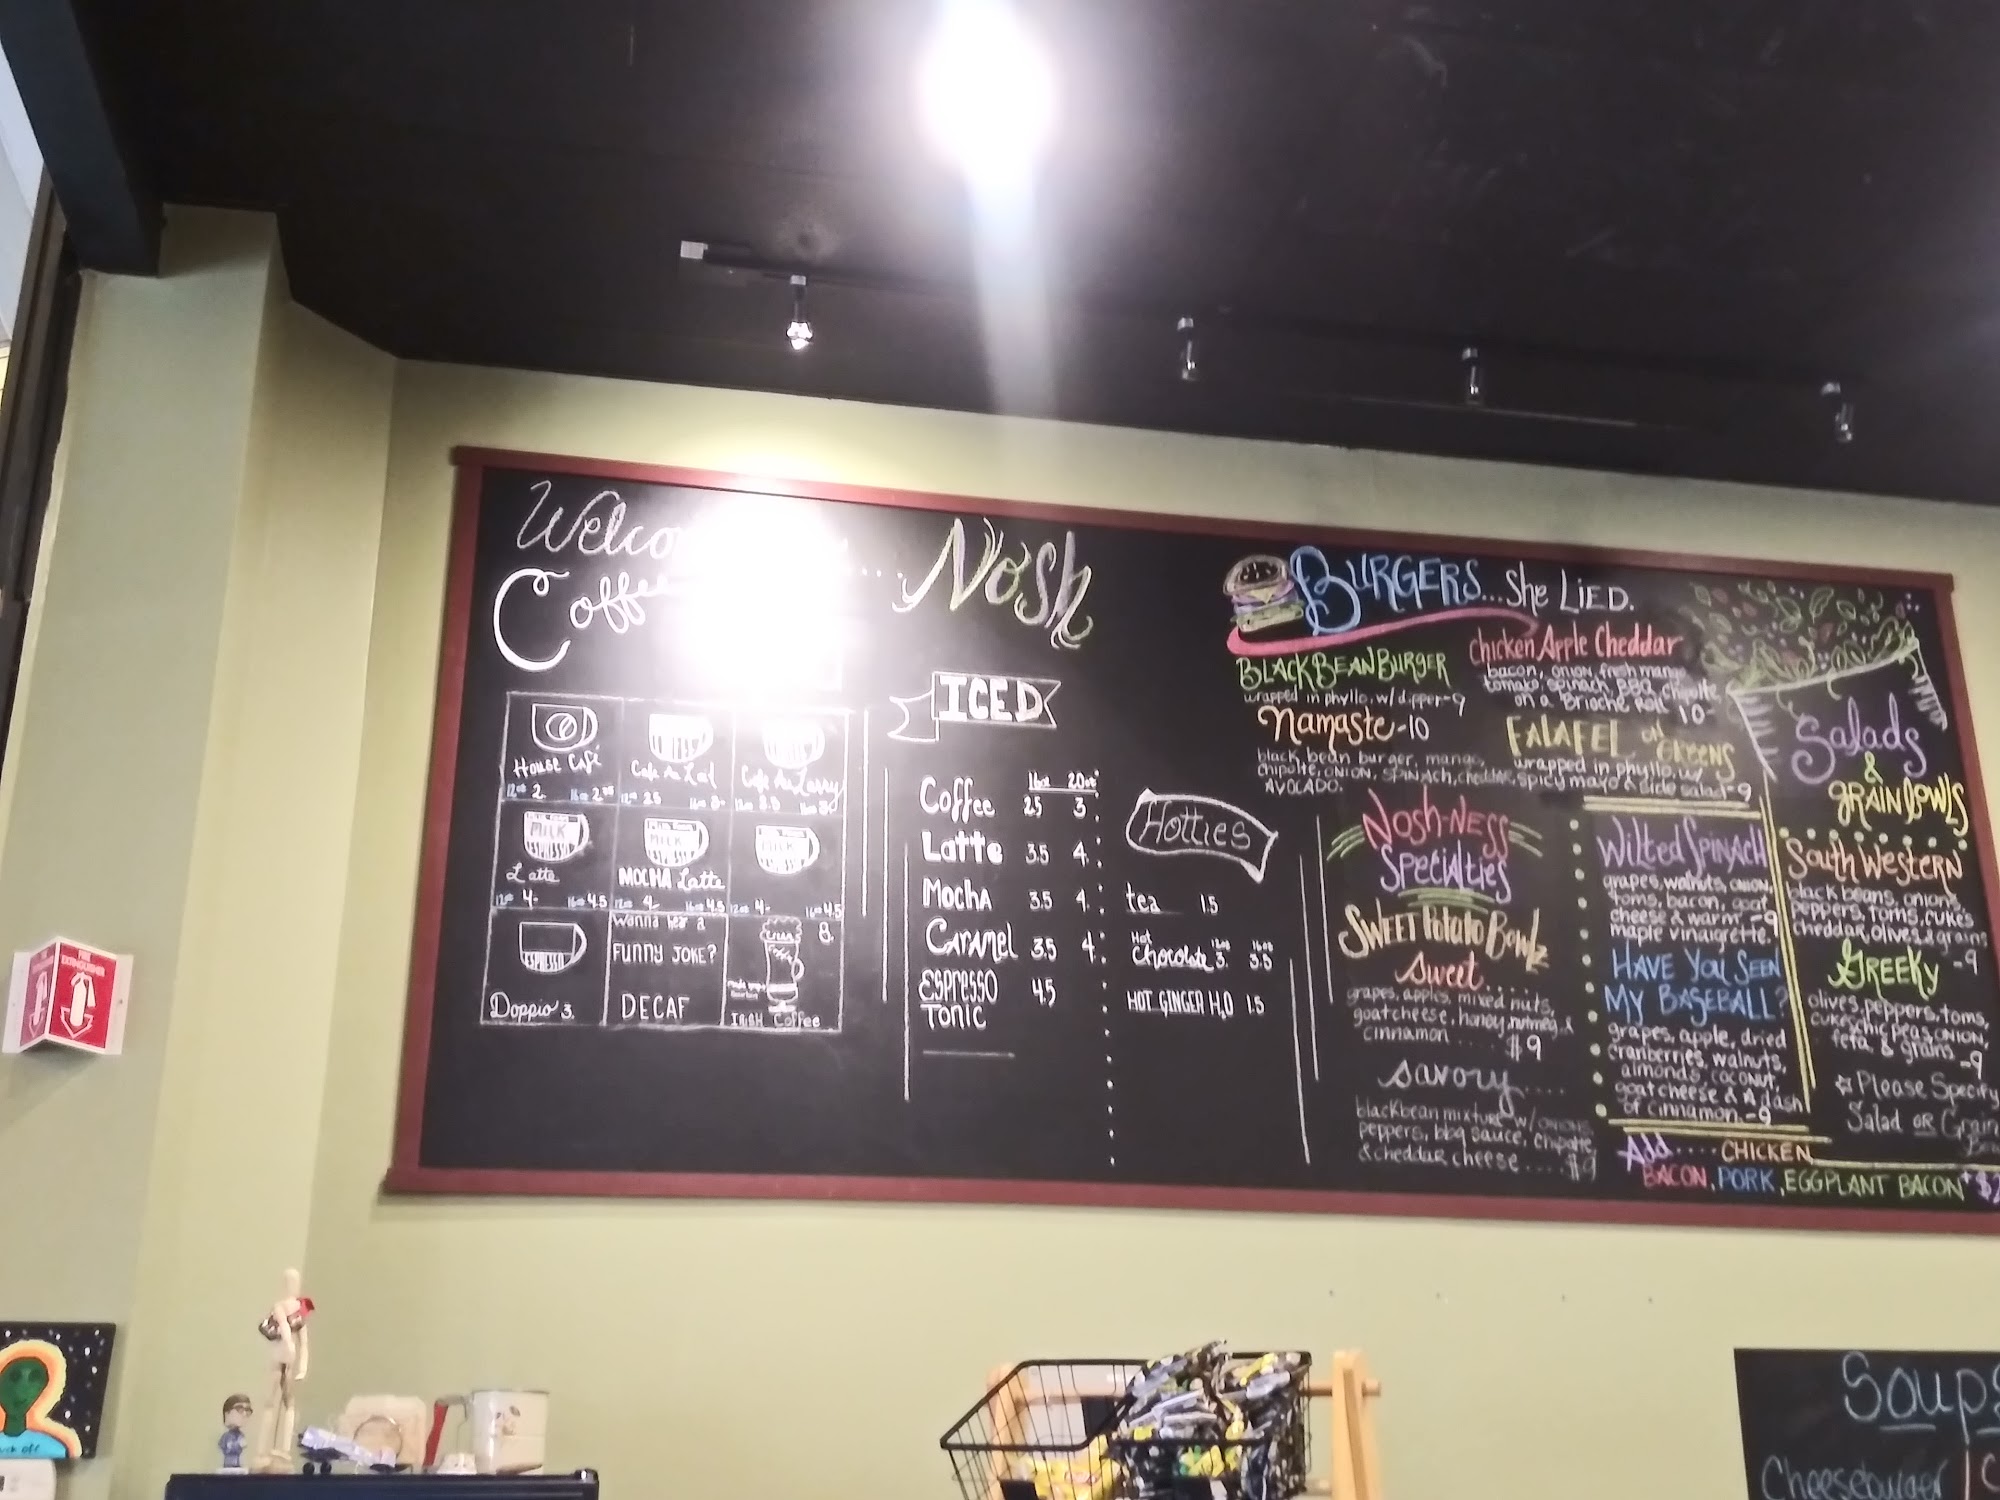 Welco
Coffee
Nosh
House Café
12oz 2. 16oz 2.25
Cafe Au Lait
12oz 2.5 16oz 3-
Cafe Au Larry
12oz 2.5 16oz 3-
MILK
ESPRESSO
Latte
12oz 4- 16oz 4.5
MILK
MOCHA Latte
12oz 4- 16oz 4.5
MILK
12oz 4- 16oz 4.5
ESPRESSO
Doppio 3.
Wanna hear a
FUNNY JOKE?
DECAF
8.
IRISH Coffee
ICED
16oz 20oz
Coffee 2.5 3.
Latte 3.5 4.
Mocha 3.5 4.
Caramel 3.5 4.
Espresso 4.5
Tonic
Hotties
tea 1.5
Hot 12oz 16oz
Chocolate 3. 3.5
HOT GINGER H2O 1.5
BURGERS...She LiED.
BLACK BEAN BURGER
wrapped in phyllo, w/dipper-9
Namaste-10
black bean burger, mango,
chipotle, onion, spinach, cheddar,
AVOCADO.
Chicken Apple Cheddar
bacon, onion, fresh mango
tomato, spinach, BBQ, chipotle
on a Brioche Roll 10-
FALAFEL on GREENS
wrapped in phyllo, w/
spicy mayo & side salad-9
NOSH-NESS
Specialties
SWEET Potato Bowlz
sweet....
grapes, apples, mixed nuts,
goat cheese, honey, nutmeg, &
cinnamon.....$9
savory....
blackbean mixture w/onions
peppers, bbq sauce, chipotle,
& cheddar cheese....$9
Wilted Spinach
grapes, walnuts, onion,
toms, bacon, goat
cheese & warm -9
maple vinaigrette.
HAVE YOU SEEN
MY BASEBALL?
grapes, apple, dried
cranberries, walnuts,
almonds, coconut,
goat cheese & A dash
of cinnamon.-9
Add....CHICKEN
BACON, PORK, EGGPLANT BACON
Salads
&
GRAIN BOWLS
South Western
black beans, onions
peppers, toms, cukes
cheddar, olives, & grains
-9
GREEKY
olives, peppers, toms,
cukes, chic peas, onion,
feta & grains -9
☆Please Specify
Salad or Grain
Soups
Cheeseburger
FIRE
EXTINGUISHER